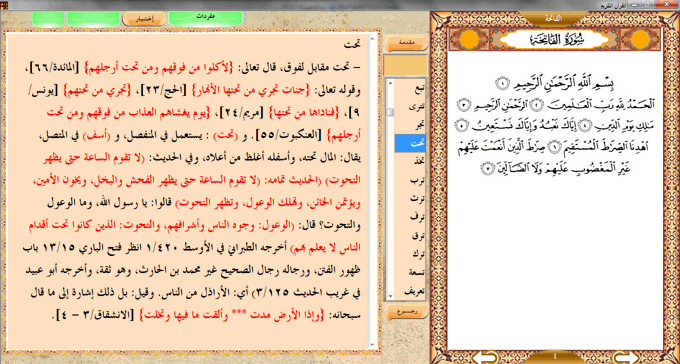 القرآن الكريم
مفردات
إختيار
الفاتحة
سُورَةُ الفَاتِحَةِ
بِسْمِ اللَّهِ الرَّحْمَٰنِ الرَّحِيمِ ١
الْحَمْدُ لِلَّهِ رَبِّ الْعَالَمِينَ ٢ الرَّحْمَٰنِ الرَّحِيمِ ٣
مَالِكِ يَوْمِ الدِّينِ ٤ إِيَّاكَ نَعْبُدُ وَإِيَّاكَ نَسْتَعِينُ ٥
اهْدِنَا الصِّرَاطَ الْمُسْتَقِيمَ ٦ صِرَاطَ الَّذِينَ أَنْعَمْتَ عَلَيْهِمْ
غَيْرِ الْمَغْضُوبِ عَلَيْهِمْ وَلَا الضَّالِّينَ ٧
1
مقدمة
تبع
تترى
تجر
تحت
تخذ
ترب
ترث
ترف
ترق
ترك
تسعة
تعريف
رجــوع
تحت
– تحت مقابل لفوق، قال تعالى: {لأكلوا من فوقهم ومن تحت أرجلهم} [المائدة/٦٦]،
وقوله تعالى: {جنات تجري من تحتها الأنهار} [الحج/٢٣]، {تجري من تحتهم} [يونس/
٩]، {فناداها من تحتها} [مريم/٢٤]، {يوم يغشاهم العذاب من فوقهم ومن تحت
أرجلهم} [العنكبوت/٥٥]. و (تحت) : يستعمل في المنفصل، و (أسفل) في المتصل،
يقال: المال تحته، وأسفله أغلظ من أعلاه، وفي الحديث: (لا تقوم الساعة حتى يظهر
التحوت) (الحديث تمامه: (لا تقوم الساعة حتى يظهر الفحش والبخل، ويخون الأمين،
ويؤتمن الخائن، وتهلك الوعول، وتظهر التحوت) قالوا: يا رسول الله، وما الوعول
والتحوت؟ قال: (الوعول: وجوه الناس وأشرافهم، والتحوت: الذين كانوا تحت أقدام
الناس لا يعلم بهم) أخرجه الطبراني في الأوسط ١/٤٢٠ انظر فتح الباري ١٣/١٥ باب
ظهور الفتن، ورجاله رجال الصحيح غير محمد بن الحارث، وهو ثقة، وأخرجه أبو عبيد
في غريب الحديث ٣/١٢٥) أي: الأراذل من الناس. وقيل: بل ذلك إشارة إلى ما قال
سبحانه: {وإذا الأرض مدت *** وألقت ما فيها وتخلت} [الانشقاق/٣ – ٤].